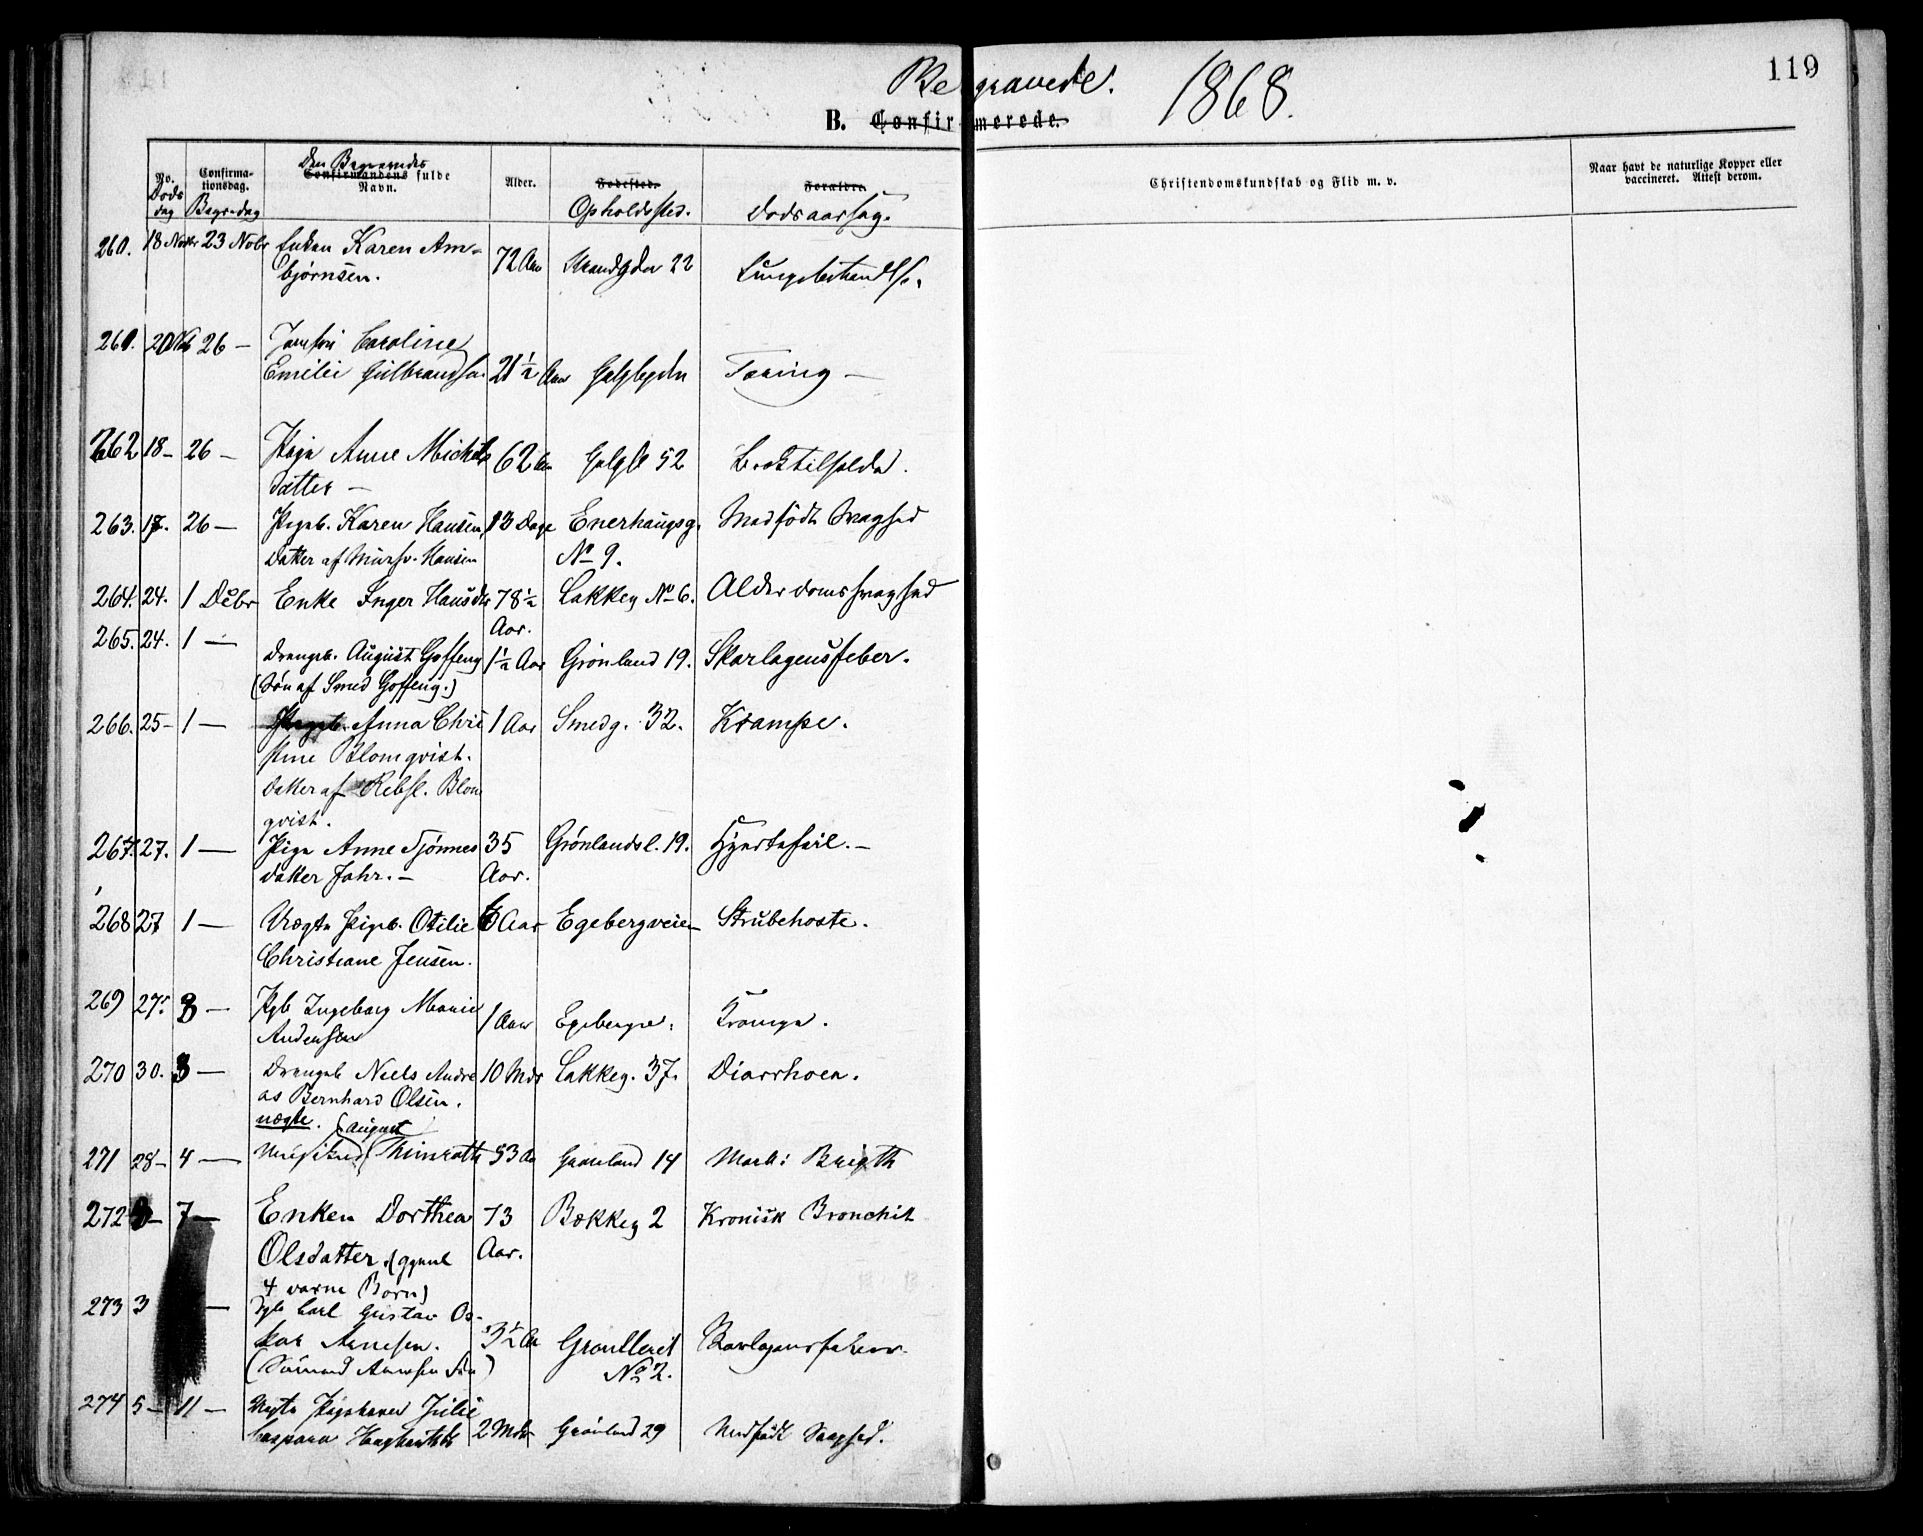 Begravede. 1868.
119
B. Confirmerede.
No. Døds dag
Confirmationsdag. Begr-dag
Den Begravedes Confirmandens fulde Navn.
Alder.
Fødested. Opholdssted.
Forældre. Dødsaarsag.
Christendomskundskab og Flid m. v.
Naar havt de naturlige Kopper eller vaccineret. Attest derom.
260. 18 Novbr 23 Nobr Enken Karen Am-
bjørnsen. 72 Aar 22
261. 26 — Caroline
Emilie Gulbrandsen 21½ Aar Tæring —
262 18— 26 — Pige Anne Michels
datter — 62 Aar 52
263. 17. 26 — Pigeb. Karen Hansen, 13 Dage Enerhaugsg. Medfødt Svaghed
Datter af Mursv. Hansen No 9.
264. 24. 1 Decbr Enke Inger Hansdtr 78½ Lakkeg No 6. Alderdomssvaghed
Aar.
265. 24. 1 — Drengeb. August Goffeng 1½ Aar Grønland 19. Skarlagensfeber.
(Søn af Smed Goffeng.)
266. 25— 1 — Pigeb. Anna Chri 1 Aar Smedg. 32. Krampe.
stine Blomqvist.
Datter af Rebsl. Blom
qvist.
267. 27. 1 — Pige Anne Tjønnes 35 Grønlandsl. 19. Hjertefeil. —
datter Fahr. — Aar.
268 27 1 — Uægte Pigeb. Otilie 6 Aar Egebergveien Strubehoste.
Christiane Jensen.
269 27. 3 — Pgb Ingeborg Marie
Andersen 1 Aar Egebergv.
270 30. 3 — Drengeb Niels Andre 10 Mdr Lakkeg. 37. Diarrhoea.
as Bernhard Olsen.
uægte. (August
271 28— 4 — Thimroth 53 Aar Grønland 14 Morb: Brigth
272 7 — Enken Dorthea 73 Bækkeg 2 Kronisk Bronchit
Olsdatter. Aar.
4 Børn)
273 3 — Carl Gustav Os-
kar Arnesen. 3½ Aar Skarlagensfeber
No 2.
274 5— 11 — Uægte Julie
2 Mdr Grønland 29 Medfødt Svaghed.